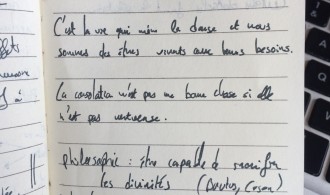 C'est la vie qui mène la danse et nous
sommes des êtres vivants avec leurs besoins.
La consolation n'est pas une bonne chose si elle
n'est pas vertueuse.
philosophie : être capable de
les divinités